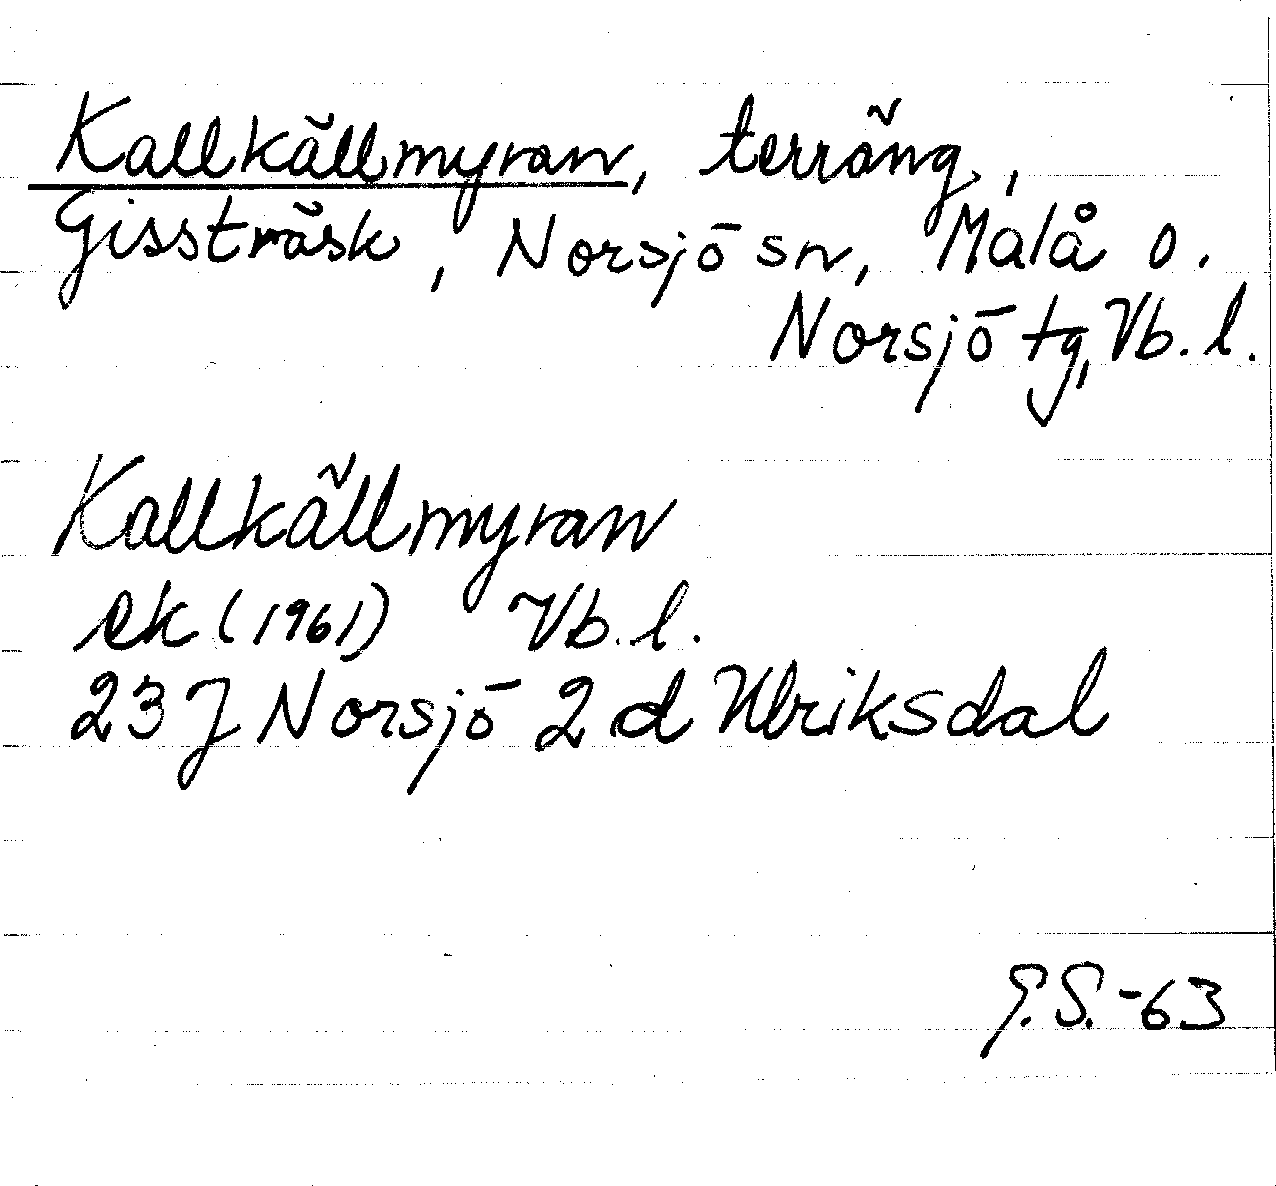 Kallkällmyran, terräng,
Gissträsk, Norsjö sn, Malå o.
Norsjö tg, Vb. l.
Kallkällmyran
ek (1961) Vb. l.
23 J Norsjö 2 d Ulriksdal
G.S.-63